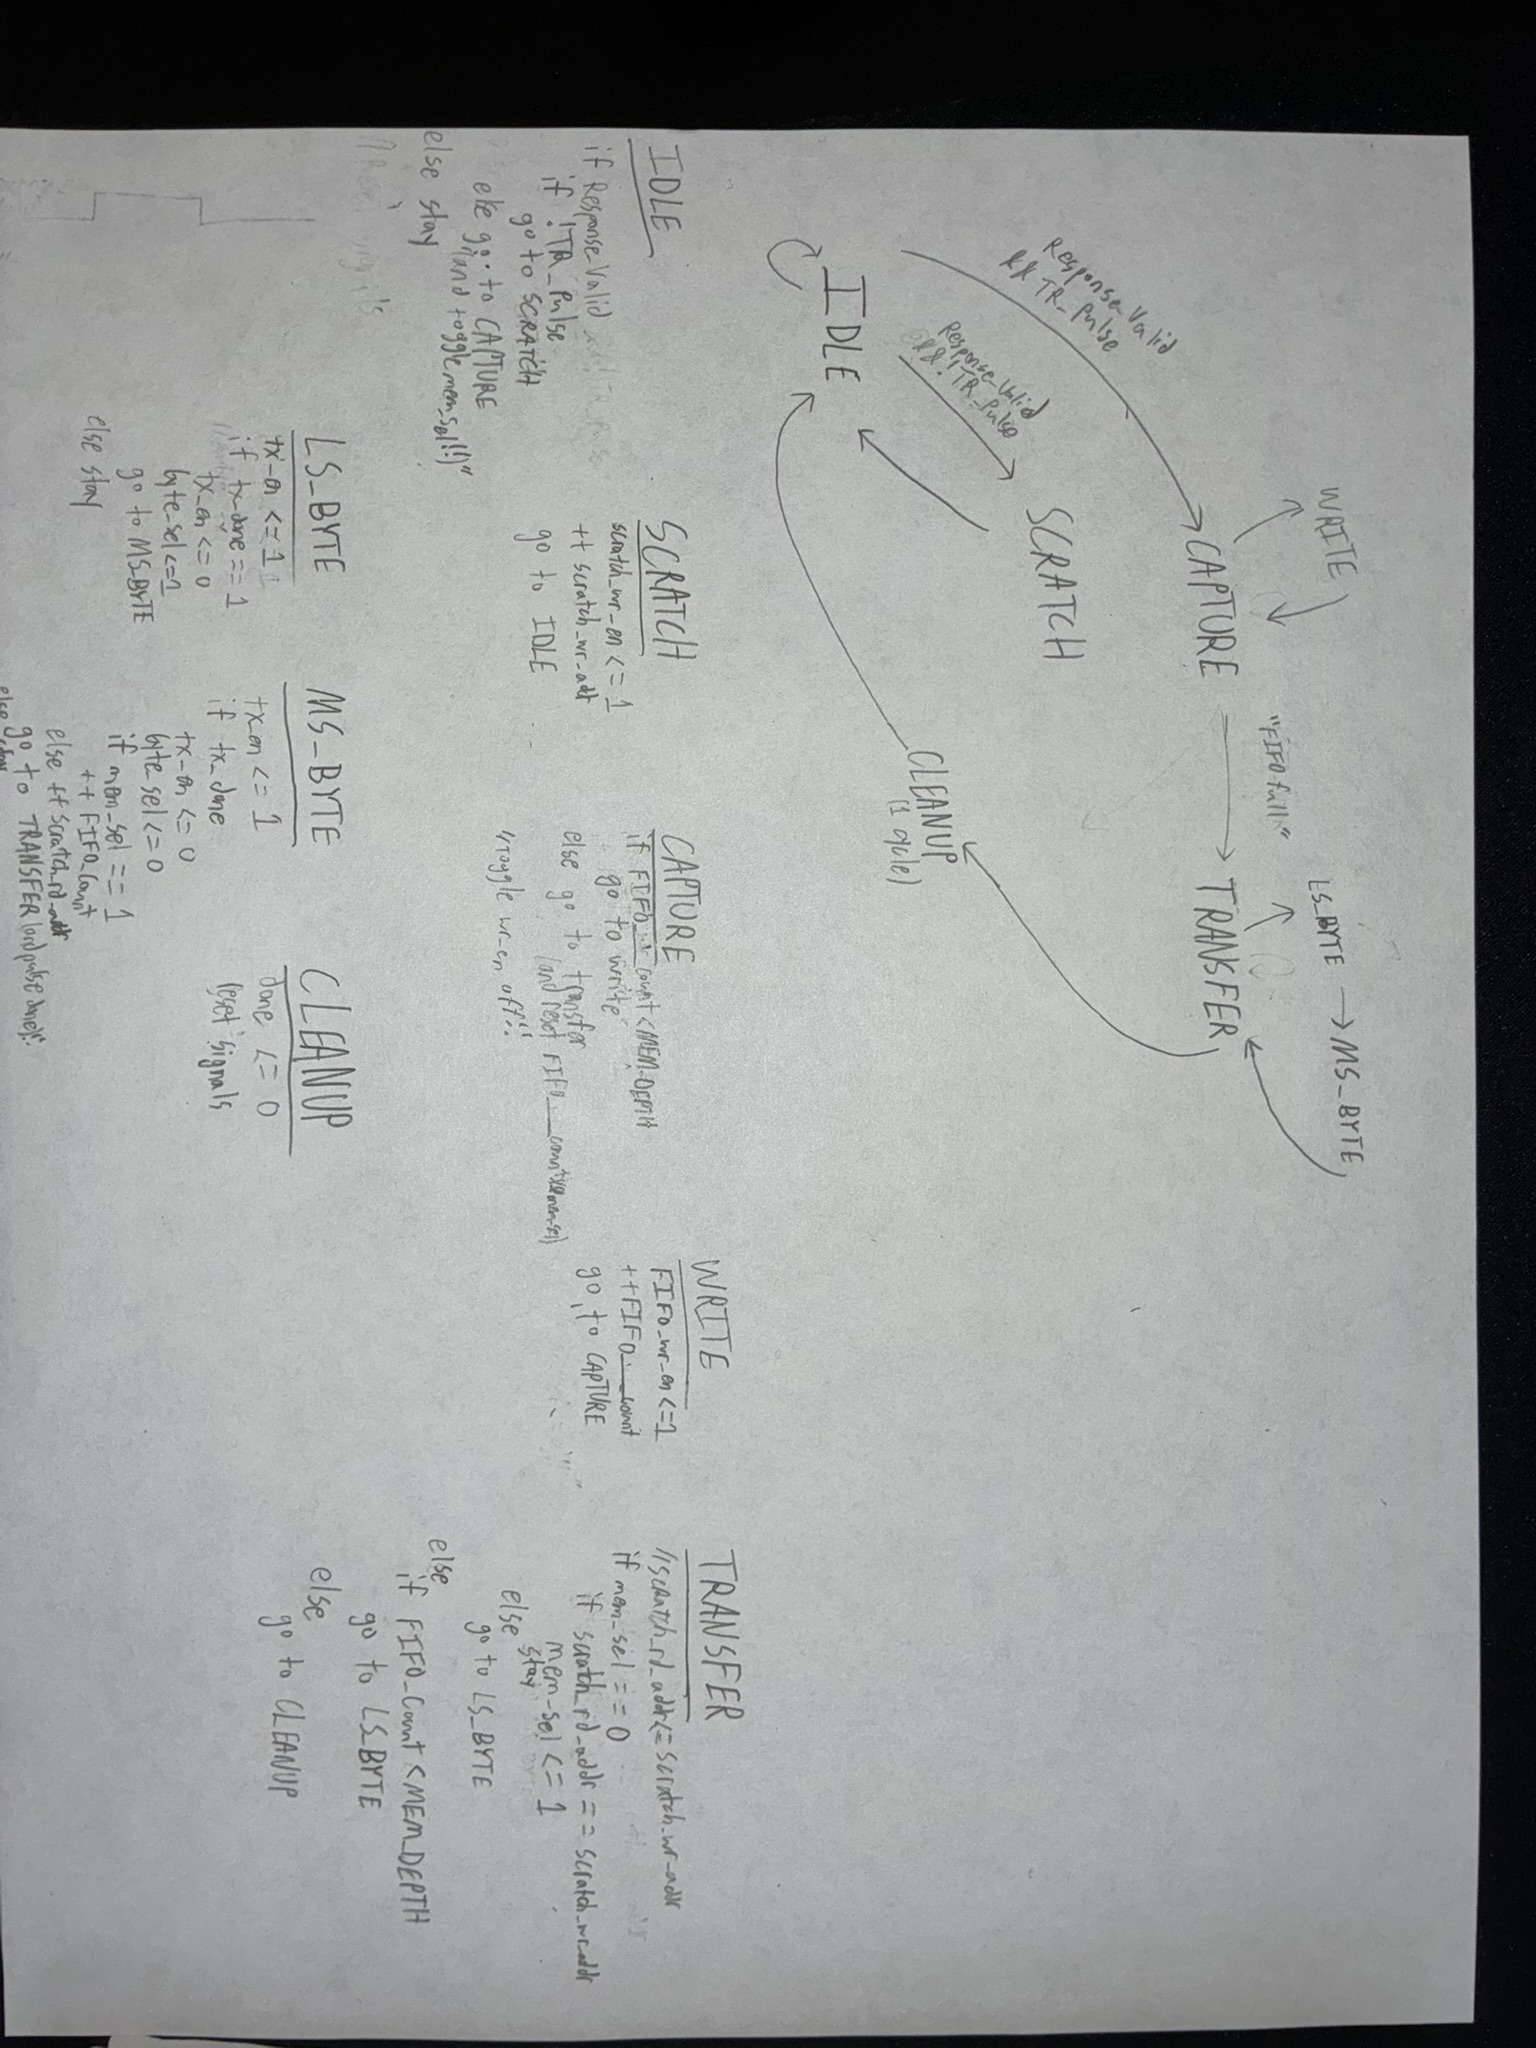 WRITE
LS_BYTE → MS_BYTE
"FIFO full"
CAPTURE → TRANSFER
Response_Valid
&& TR_pulse
SCRATCH
Response_Valid
&& !TR_pulse
CLEANUP
(1 cycle)
IDLE
IDLE
if Response_Valid
if !TR_pulse
go to SCRATCH
else go to CAPTURE
(and toggle mem_sel!!)"
else stay
SCRATCH
scratch_wr_en <= 1
++ scratch_wr_adr
go to IDLE
CAPTURE
if FIFO_wr_count < MEM_DEPTH
go to write
else go to transfer
(and reset FIFO_count
"toggle wr_en off"
WRITE
FIFO_wr_en <= 1
++FIFO_count
go to CAPTURE
TRANSFER
//scratch_rd_addr <= scratch_wr_addr
if mem_sel == 0
if scratch_rd_addr == scratch_wr_addr
mem_sel <= 1
stay
else
go to LS_BYTE
else
if FIFO_Count < MEM_DEPTH
go to LS_BYTE
else
go to CLEANUP
LS_BYTE
tx_en <= 1
if tx_done == 1
tx_en <= 0
byte_sel <= 1
go to MS_BYTE
else stay
MS_BYTE
tx_en <= 1
if tx_done
tx_en <= 0
byte_sel <= 0
if mem_sel == 1
++ FIFO_Count
else ++ scratch_rd_addr
go to TRANSFER (and pulse done)
else
CLEANUP
done <= 0
reset signals